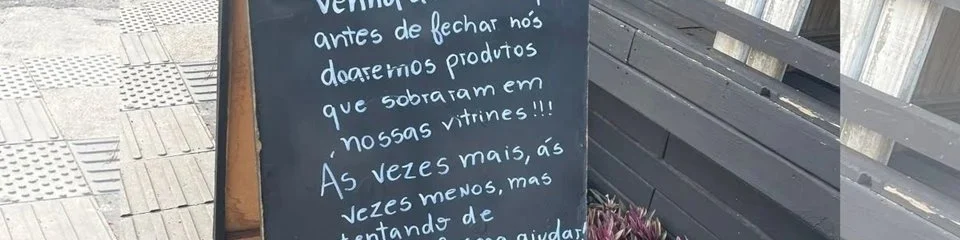 antes de fechar nós
doaremos produtos
que sobraram em
nossas vitrines!!!
Ás vezes mais, ás
vezes menos, mas
tentando de
ajudar!